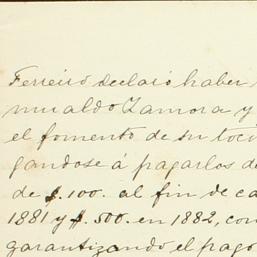 Ferreiro declaró haber
mualdo Zamora y
el fomento de su toci
gandose á pagarlos de
de $.100. al fin de ca
1881 y $.500. en 1882, con
garantizando el pago